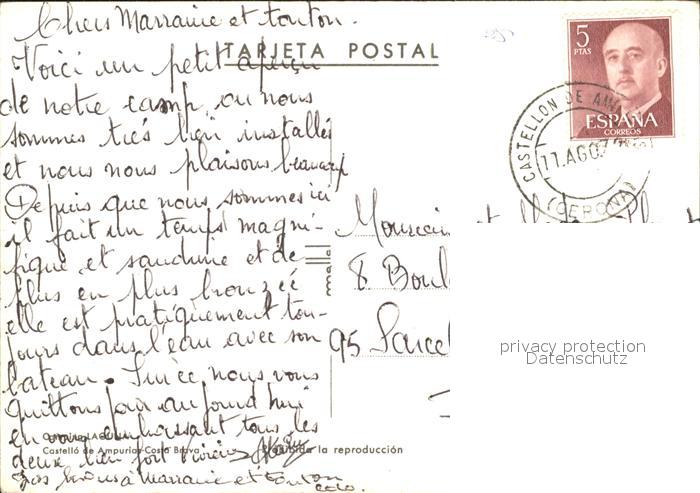 Chers Marraine et tonton.
TARJETA POSTAL
Voici un petit aperçu
de notre camp, ou nous
sommes très bien installés
et nous nous plaisons beaucoup
Depuis que nous sommes ici
il fait un temps magni-
fique et sandrine et de
plus en plus bronzée
elle est pratiquement tou-
jours dans l'eau avec son
bateau. Sur ce nous vous
quittons pour aujourd'hui
en vous embrassant tous les
deux bien fort
gros bisous à Marraine et tonton
Castelló de Ampurias-Costa Brava
la reproducción
5
PTAS
ESPAÑA
CORREOS
CASTELLON DE AM
11.AGO
(GERONA)
Monsieur
8 Boul
95 Sarcel
privacy protection
Datenschutz